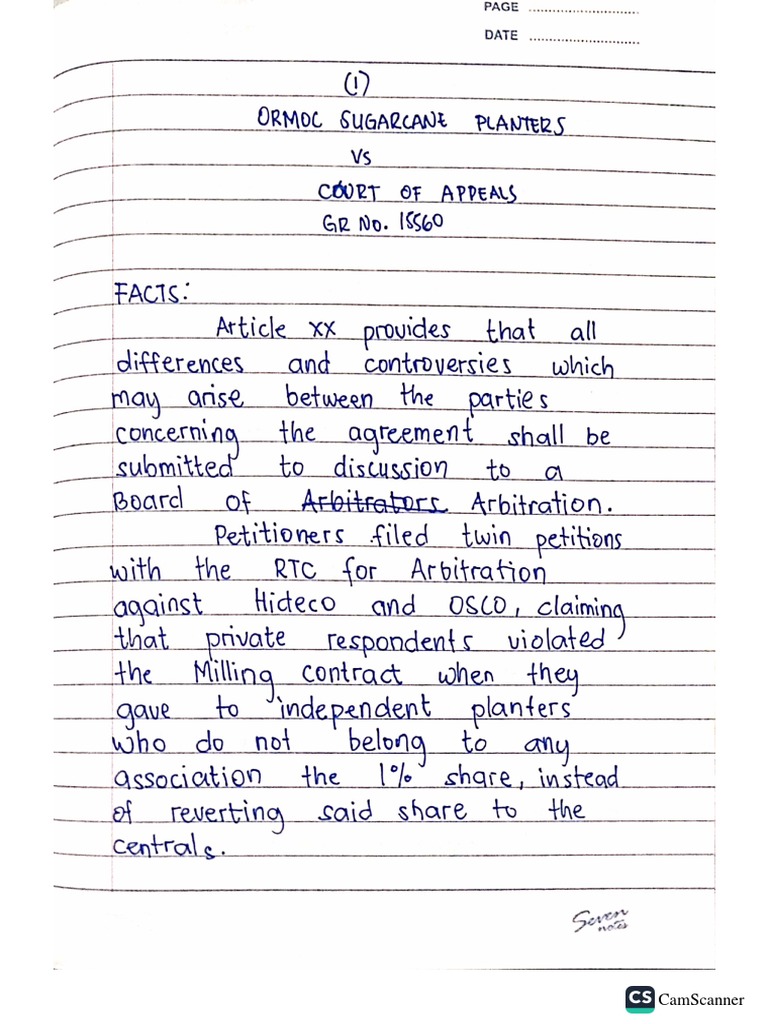 PAGE ..............................
DATE ..............................
(1)
ORMOC SUGARCANE PLANTERS
VS
COURT OF APPEALS
GR No. 15560
FACTS:
Article XX provides that all
differences and controversies which
may arise between the parties
concerning the agreement shall be
submitted to discussion to a
Board of Arbitrators Arbitration.
Petitioners filed twin petitions
with the RTC for Arbitration
against Hideco and OSCO, claiming
that private respondents violated
the Milling contract when they
gave to independent planters
who do not belong to any
association the 1% share, instead
of reverting said share to the
centrals.
Seven
notes
CS CamScanner